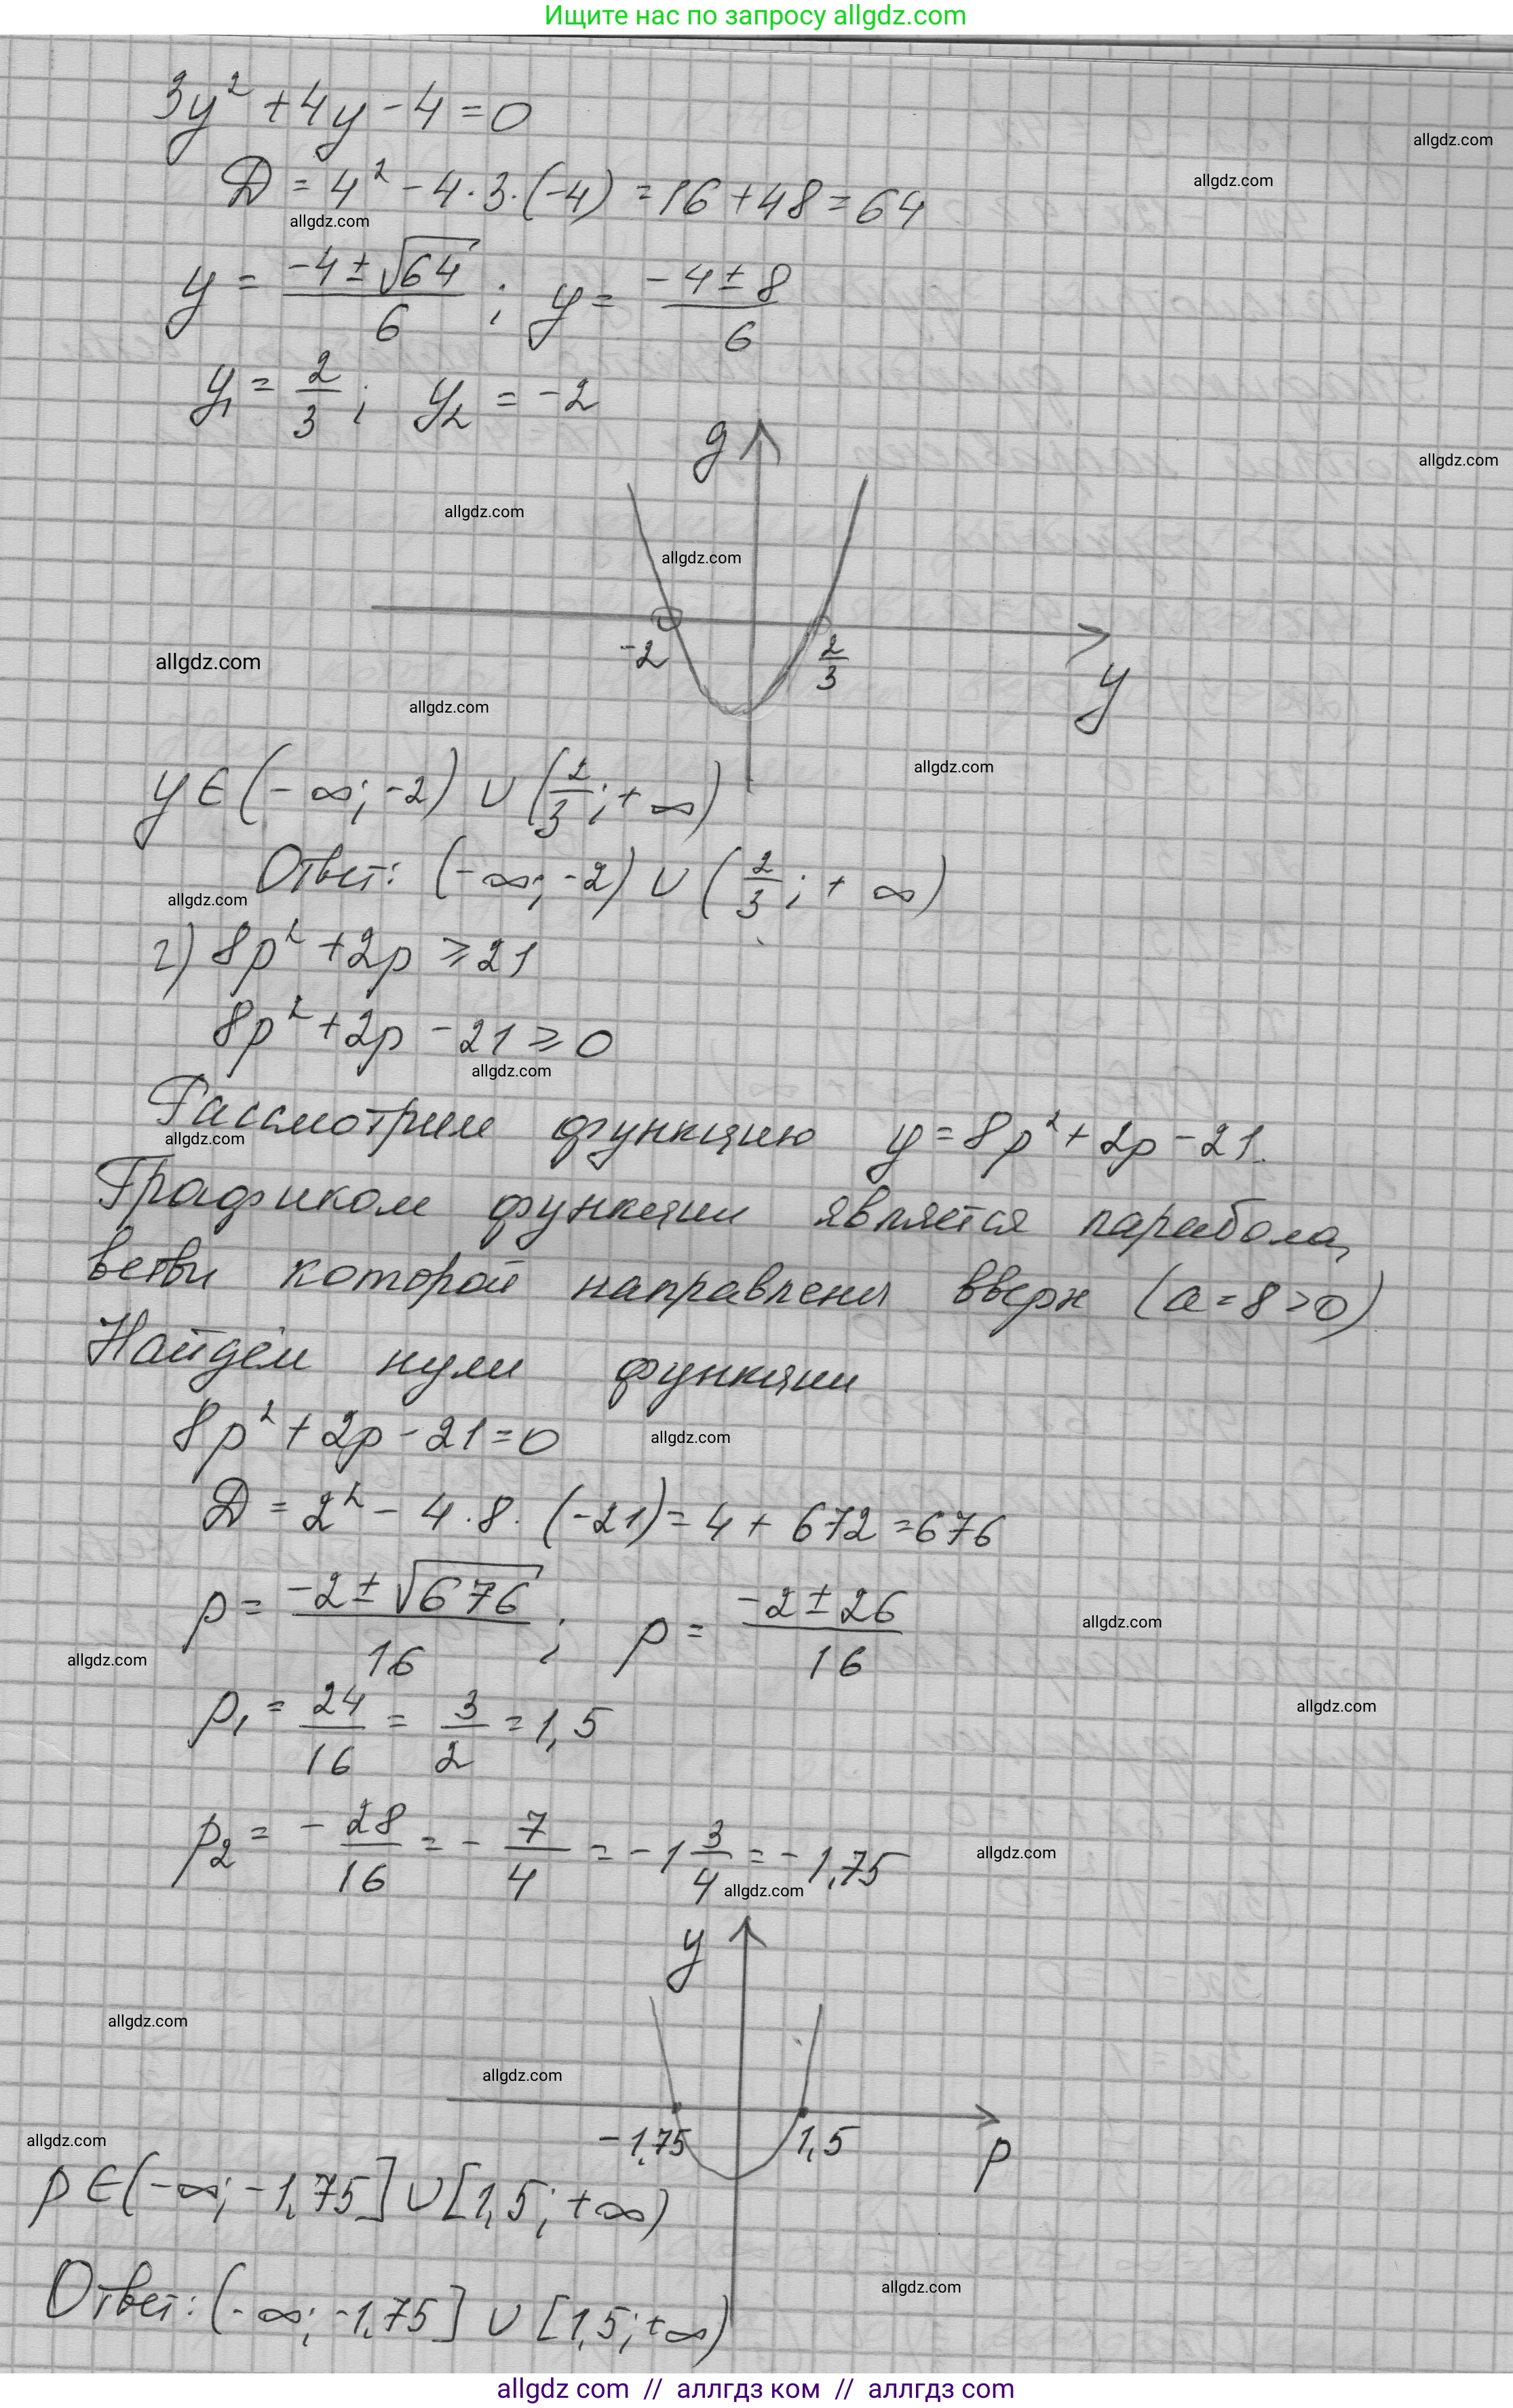 Ищите нас по запросу allgdz.com
3y² + 4y - 4 = 0
allgdz.com
D = 4² - 4·3·(-4) = 16 + 48 = 64
allgdz.com
allgdz.com
y = (-4 ± √64)/6 ; y = (-4 ± 8)/6
y₁ = 2/3 ; y₂ = -2
g
allgdz.com
allgdz.com
allgdz.com
-2 2/3
allgdz.com
y
allgdz.com
allgdz.com
y ∈ (-∞; -2) ∪ (2/3; +∞)
Ответ: (-∞; -2) ∪ (2/3; +∞)
allgdz.com
г) 8p² + 2p ≥ 21
8p² + 2p - 21 ≥ 0
allgdz.com
Рассмотрим функцию y = 8p² + 2p - 21.
allgdz.com
Графиком функции является парабола,
ветви которой направлены вверх (a = 8 > 0)
Найдём нули функции
8p² + 2p - 21 = 0
allgdz.com
D = 2² - 4·8·(-21) = 4 + 672 = 676
p = (-2 ± √676)/16 ; p = (-2 ± 26)/16
allgdz.com
allgdz.com
p₁ = 24/16 = 3/2 = 1,5
allgdz.com
p₂ = -28/16 = -7/4 = -1 3/4 = -1,75
allgdz.com
allgdz.com
y
allgdz.com
allgdz.com
-1,75 1,5
p
allgdz.com
p ∈ (-∞; -1,75] ∪ [1,5; +∞)
allgdz.com
Ответ: (-∞; -1,75] ∪ [1,5; +∞)
allgdz com // аллгдз ком // аллгдз com